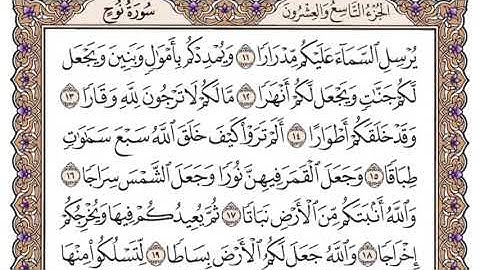 الجزء التاسع والعشرون
سورة نوح
يُرْسِلِ ٱلسَّمَآءَ عَلَيْكُم مِّدْرَارًا ١١ وَيُمْدِدْكُم بِأَمْوَٰلٍ وَبَنِينَ وَيَجْعَل
لَّكُمْ جَنَّٰتٍ وَيَجْعَل لَّكُمْ أَنْهَٰرًا ١٢ مَّا لَكُمْ لَا تَرْجُونَ لِلَّهِ وَقَارًا ١٣
وَقَدْ خَلَقَكُمْ أَطْوَارًا ١٤ أَلَمْ تَرَوْا۟ كَيْفَ خَلَقَ ٱللَّهُ سَبْعَ سَمَٰوَٰتٍ
طِبَاقًا ١٥ وَجَعَلَ ٱلْقَمَرَ فِيهِنَّ نُورًا وَجَعَلَ ٱلشَّمْسَ سِرَاجًا ١٦
وَٱللَّهُ أَنۢبَتَكُم مِّنَ ٱلْأَرْضِ نَبَاتًا ١٧ ثُمَّ يُعِيدُكُمْ فِيهَا وَيُخْرِجُكُمْ
إِخْرَاجًا ١٨ وَٱللَّهُ جَعَلَ لَكُمُ ٱلْأَرْضَ بِسَاطًا ١٩ لِّتَسْلُكُوا۟ مِنْهَا